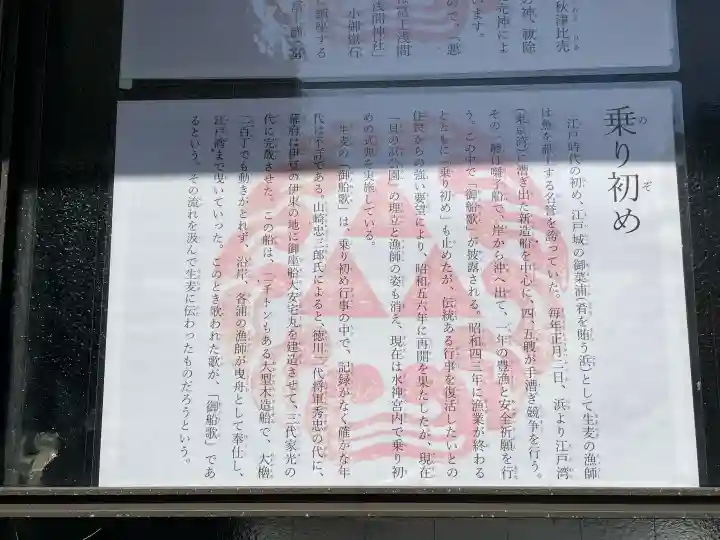 秋津比売
の神、祓除
小御嶽石
浅間神社」
に鎮座する
乗り初め
の
ぞ
江戸時代の初め、江戸城の御菜浦(肴を賄う浜)として生麦の漁師
は魚を献上する名誉を誇っていた。毎年正月二日、浜より江戸湾
(東京湾)に漕ぎ出た新造船を中心に、四、五艘が手漕ぎ競争を行う。
その一艘は囃子船で、岸から沖へ出て、一年の豊漁と安全祈願を行
う。この中で「御船歌」が披露される。昭和四三年に漁業が終わる
とともに「乗り初め」も止めたが、伝統ある行事を復活したいとの
住民からの強い要望により、昭和五六年に再開を果たしたが、現在
「貝の浜公園」の埋立と漁師の姿も消え、現在は水神宮内で乗り初
めの式典を実施している。
生麦の「御船歌」は、乗り初め行事の中で、記録がなく確かな年
代は不詳である。山崎忠三郎氏によると、徳川二代将軍秀忠の代に、
幕府は伊豆の伊東の地に御座船大安宅丸を建造させて、三代家光の
代に完成させた。この船は、二千トンもある大型木造船で、大櫓
二百丁でも動きがとれず、沿岸、各浦の漁師が曳舟として奉仕し、
江戸湾まで曳いていった。このとき歌われた歌が、「御船歌」であ
るという。その流れを汲んで生麦に伝わったものだろうという。